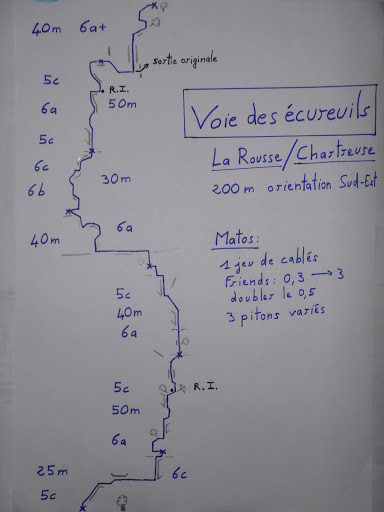 40m 6a+
sortie originale
5c
R.I.
6a 50m
5c
6c
6b
30m
40m
6a
5c
40m
6a
5c
R.I.
50m
6a
25m
6c
5c
Voie des écureuils
La Rousse/Chartreuse
200m orientation Sud-Est
Matos:
1 jeu de cablés
Friends: 0,3 → 3
doubler le 0,5
3 pitons variés